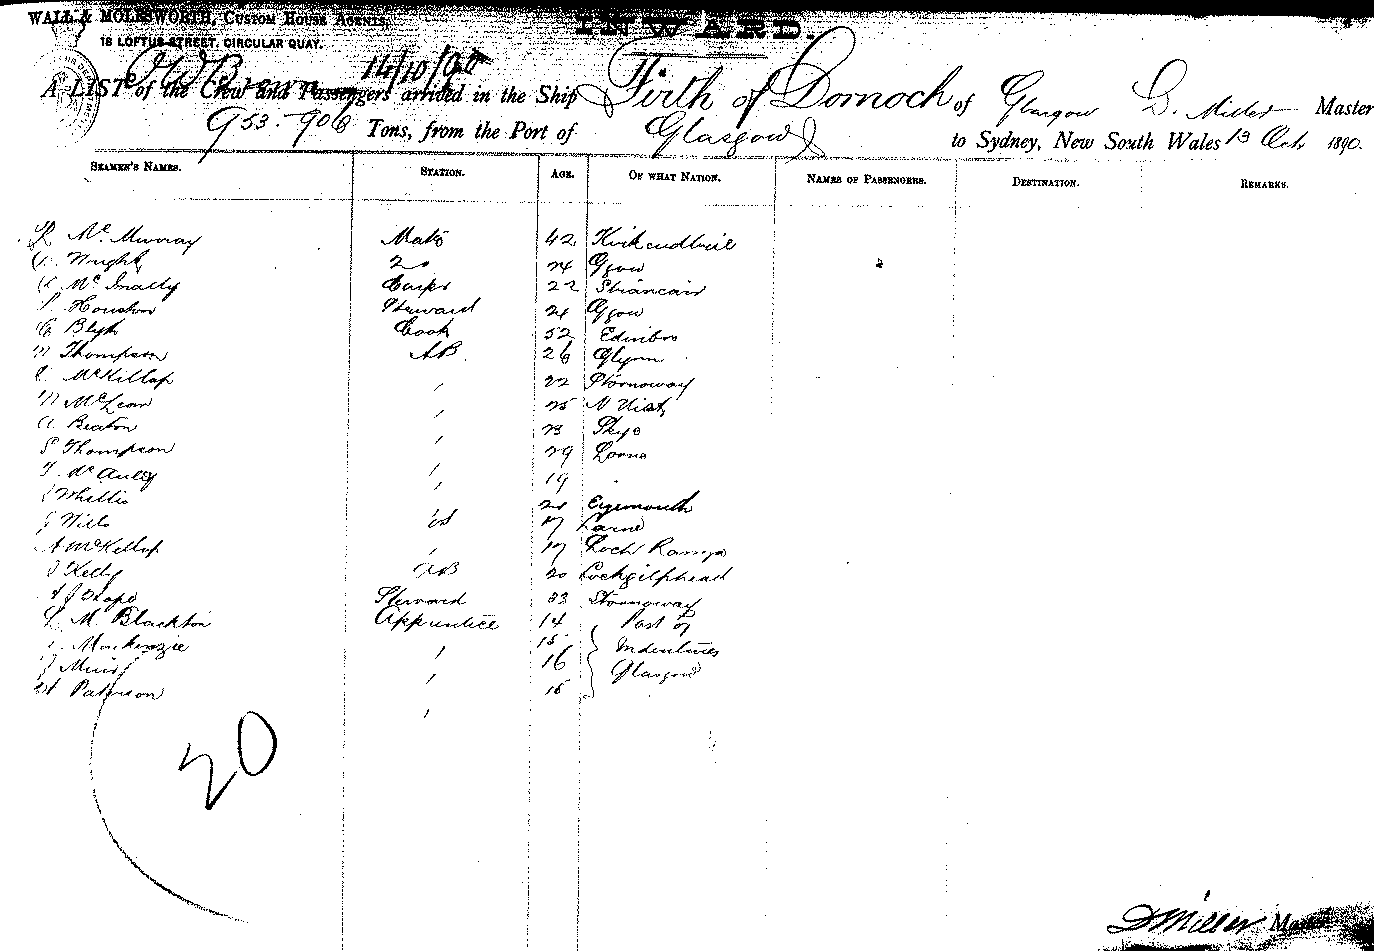 WALL & MOLESWORTH, CUSTOM HOUSE AGENTS,
18 LOFTUS STREET, CIRCULAR QUAY.
INWARD.
14/10/90
A LIST of the Crew and Passengers arrived in the Ship Firth of Dornoch of Glasgow D. Miller Master
953-906 Tons, from the Port of Glasgow to Sydney, New South Wales 13 Oct 1890.
SEAMEN'S NAMES. STATION. AGE. OF WHAT NATION. NAMES OF PASSENGERS. DESTINATION. REMARKS.
Mc Murray Mate 42 Kirkcudbrie
Wright 2o 24 Ggow
Mc Inally Carpr 22
Houston Steward 21 Ggow
Blyth Cook 52 Edinbro
Thompson AB 26 Glynn
McKillop " 22 Stornoway
McLean " 25 N Uist
A. Beaton " 23 Skye
Thompson " 29 Lorne
Mc Auley " 19
J Whillis " 21 Eyemouth
J OS 17 Larne
A McKillop " 17 Loch Ranza
J Kelly AB 20 Lochgilphead
Steward 33 Stornoway
M. Blackton Apprentice 14 Port of
Mackenzie " 15 Indentures
J Muir " 16 Glasgow
Paterson " 15
20
D Miller Master